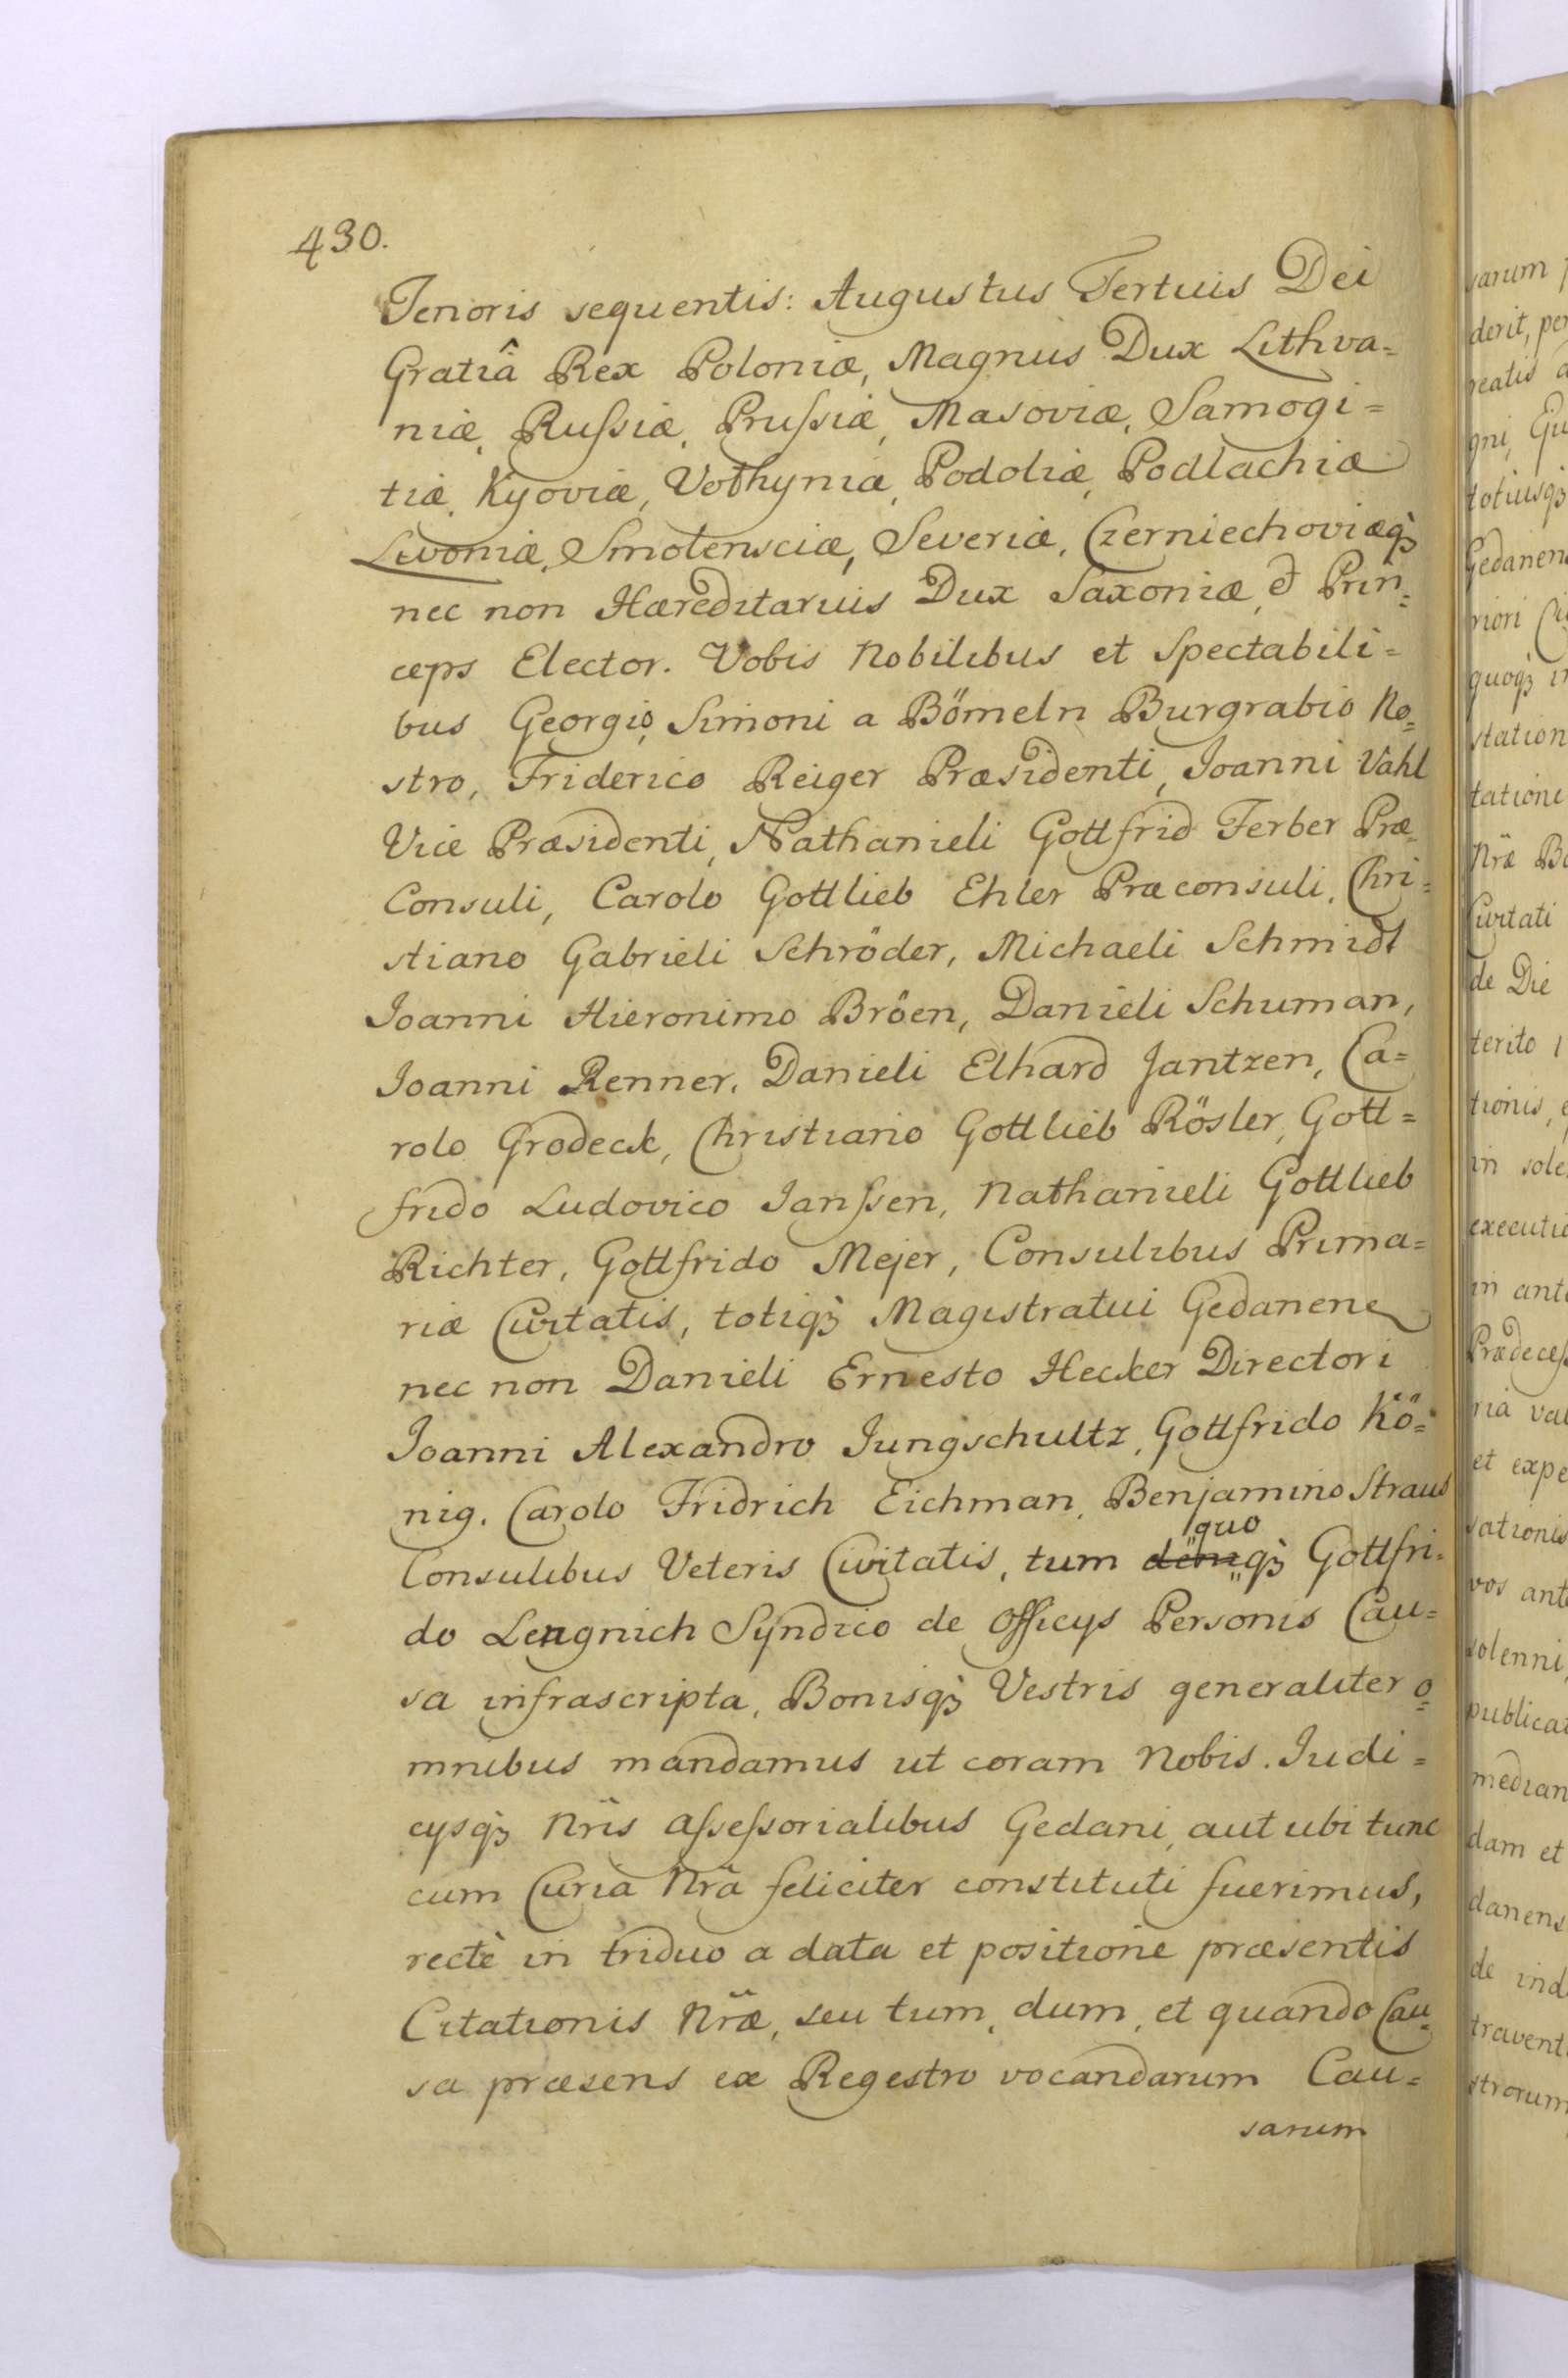 430.
Tenoris sequentis: Augustus Tertius Dei
Gratiâ Rex Poloniæ, Magnus Dux Lithva=
niæ, Rußiæ, Prußiæ, Masoviæ, Samogi=
tiæ, Kyoviæ, Volhyniæ, Podoliæ, Podlachiæ
Livoniæ, Smolensciæ, Severiæ, Czerniechoviæq3
nec non Hæreditarius Dux Saxoniæ, et Prin=
ceps Elector. Vobis Nobilibus et Spectabili=
bus Georgio, Simoni a Bömeln Burgrabio No=
stro, Friderico Reiger Præsidenti, Joanni Vahl
Vice Præsidenti, Nathanieli Gottfrid Ferber Præ=
Consuli, Carolo Gottlieb Ehler Præconsuli, Chri=
stiano Gabrieli Schröder, Michaeli Schmidt
Joanni Hieronimo Bröen, Danieli Schuman,
Joanni Renner, Danieli Elhard Jantzen, Ca=
rolo Grodeck, Christiano Gottlieb Rösler, Gott=
frido Ludovico Janßen, Nathanieli Gottlieb
Richter, Gottfrido Mejer, Consulibus Prima=
riæ Civitatis, totiq3 Magistratui Gedanen
nec non Danieli Ernesto Hecker Directori
Joanni Alexandro Jungschultz, Gottfrido Kö=
nig, Carolo Fridrich Eichman, Benjamino Straus
quo
Consulibus Veteris Civitatis, tum q3 Gottfri=
do Lengnich Syndico de Officys Personis Cau=
sa infrascripta, Bonisq3 Vestris generaliter o=
mnibus mandamus ut coram Nobis. Judi=
cysq3 Nr̃is Aßeßorialibus Gedani, aut ubi tunc
cum Curia Nr̃a feliciter constituti fuerimus,
rectè in triduo a data et positione præsentis
Citationis Nr̃æ, seu tum, dum, et quando Cau=
sa præsens ex Regestro vocandarum Cau=
sarum
sarum
derit, per
reatis
gni,
totiusq3
Gedanen
riori
quoq3 in
station
tatione
Nr̃æ
Civitati
de Die
terito
tionis,
in sole
executio
in ante
Prædeceß
ria
et expe
sationis
vos ante
solenni,
publicat
median
dam et
danens
de ind
travent
strorum